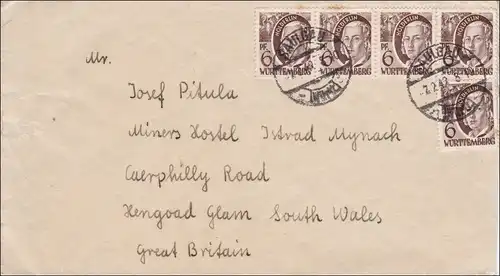 HÖLDERLIN HÖLDERLIN HÖLDERLIN HÖLDERLIN
PF PF PF PF
6 6 6 6
WÜRTTEMBERG WÜRTTEMBERG WÜRTTEMBERG WÜRTTEMBERG
HÖLDERLIN
6
WÜRTTEMBERG
Mr.
Josef Pitula
Miners Hostel Istrad Mynach
Caerphilly Road
Hengoad Glam South Wales
Great Britain